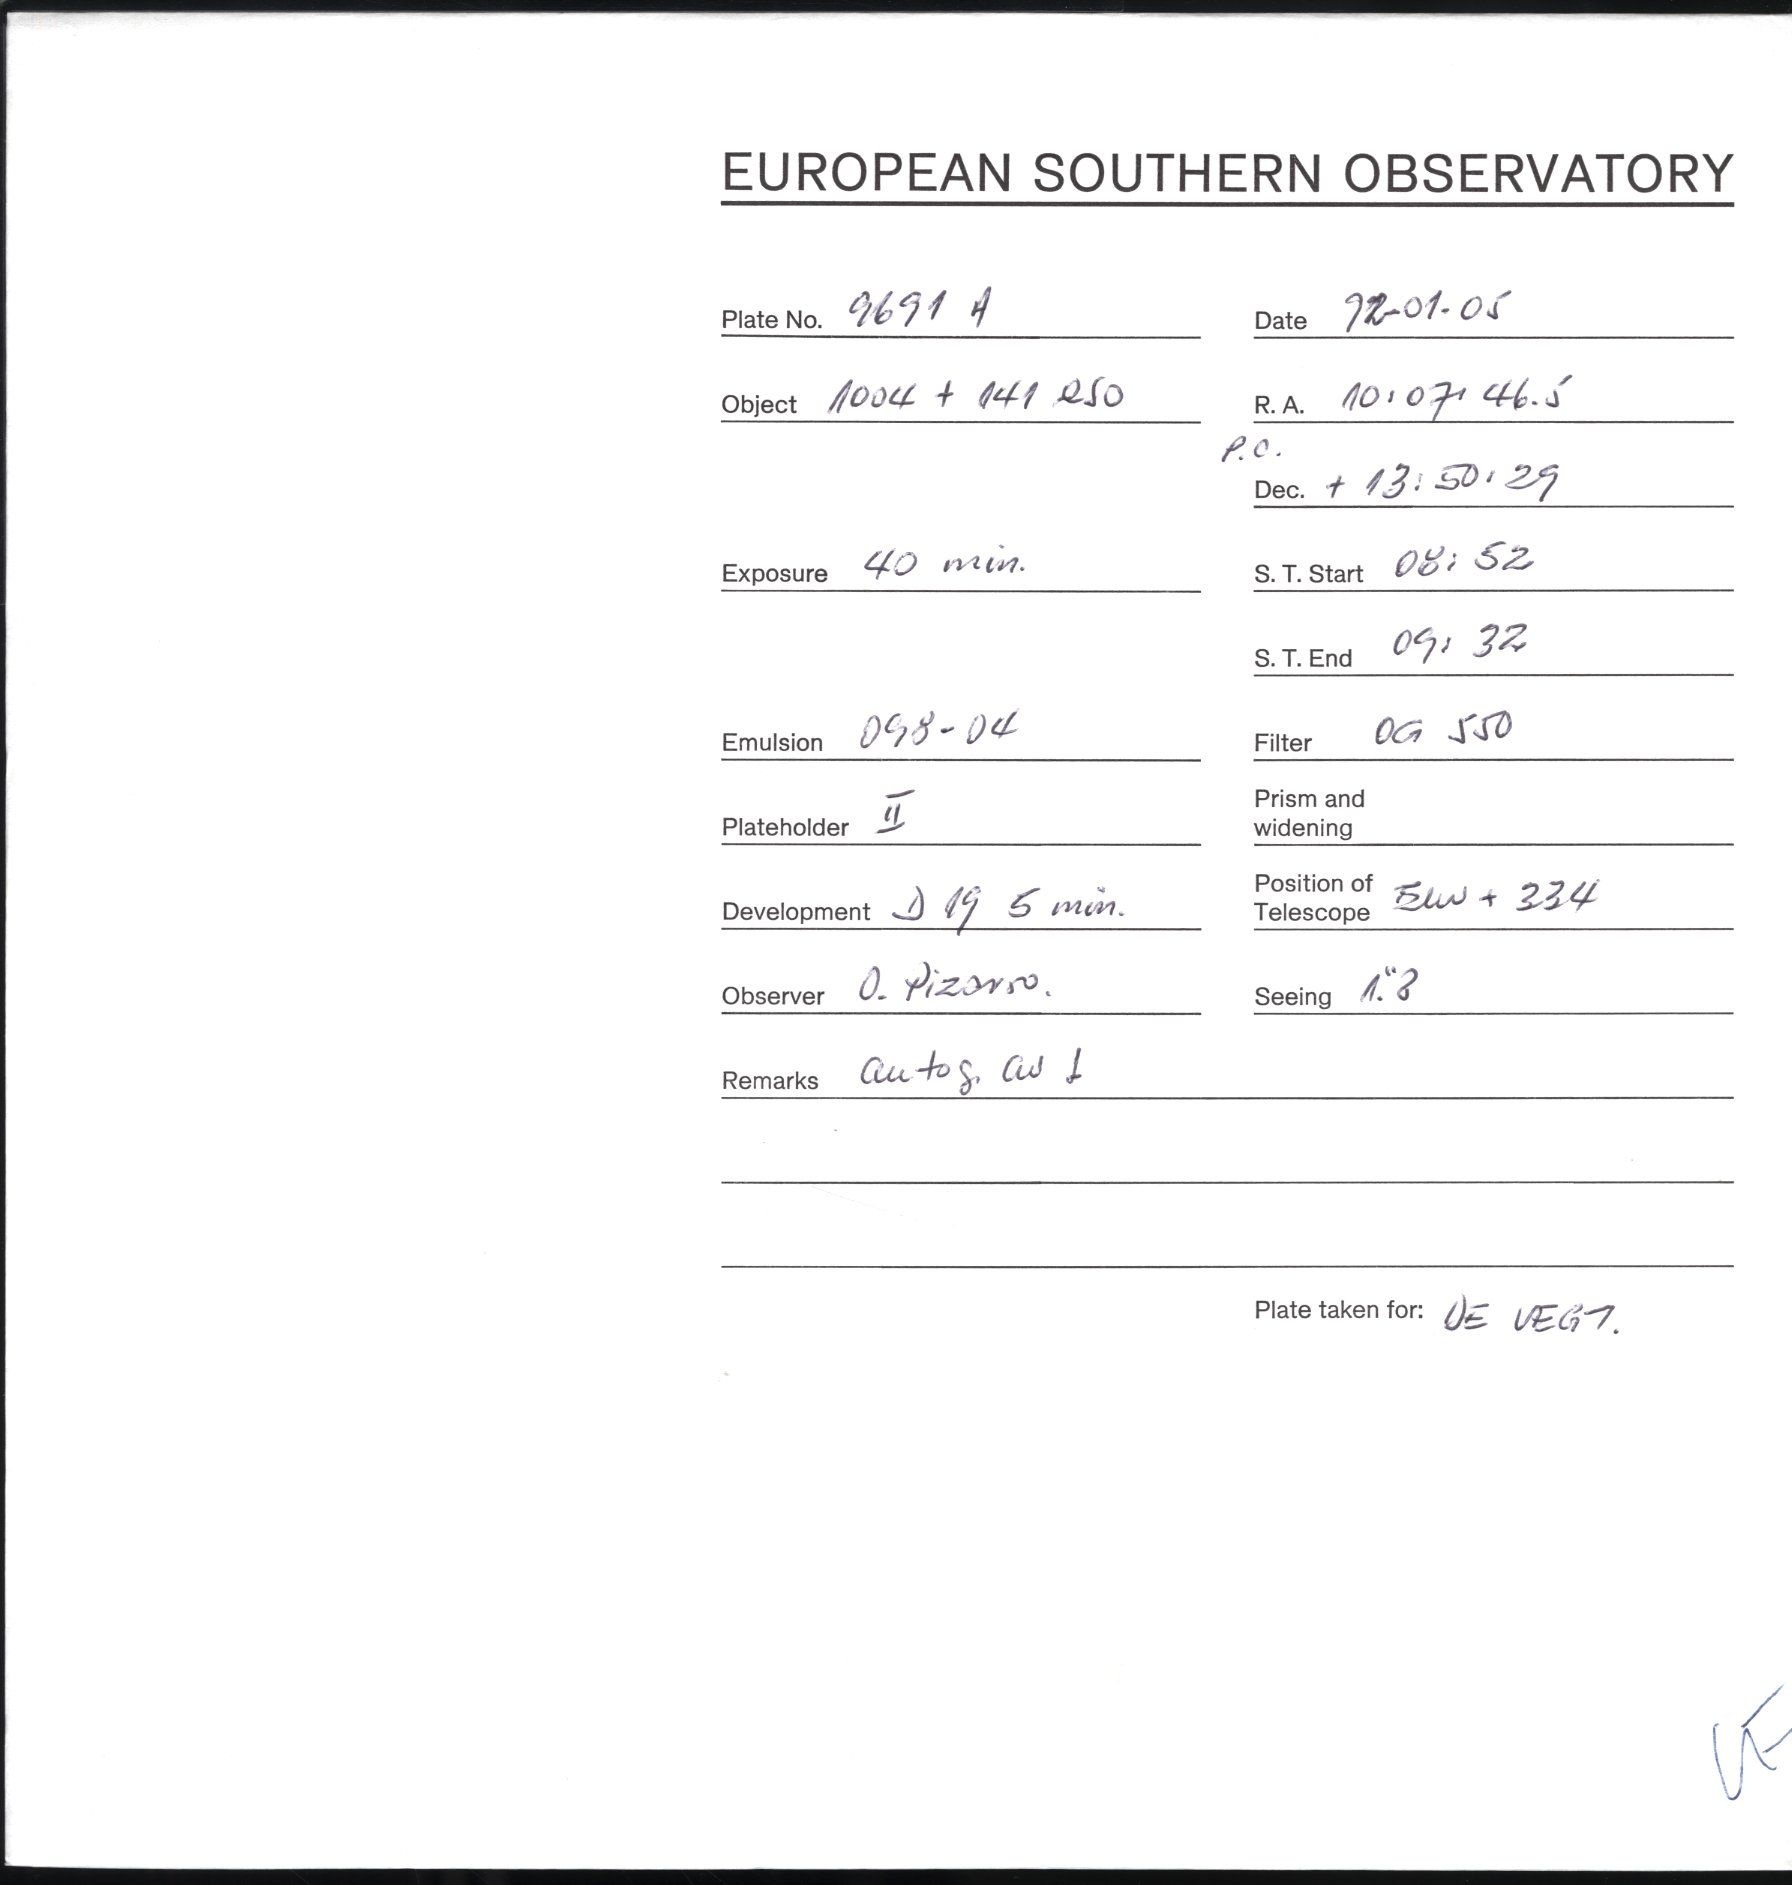 EUROPEAN SOUTHERN OBSERVATORY
Plate No. 9691 A
Date 92-01-05
Object 1004 + 141 QSO
R. A. 10:07:46.5
P.C.
Dec. + 13:50:29
Exposure 40 min.
S. T. Start 08:52
S. T. End 09:32
Emulsion 098-04
Filter OG 550
Plateholder II
Prism and
widening
Development D 19 5 min.
Position of
Telescope + 334
Observer O. Pizarro.
Seeing 1."8
Remarks autog.
Plate taken for: DE VEGT.